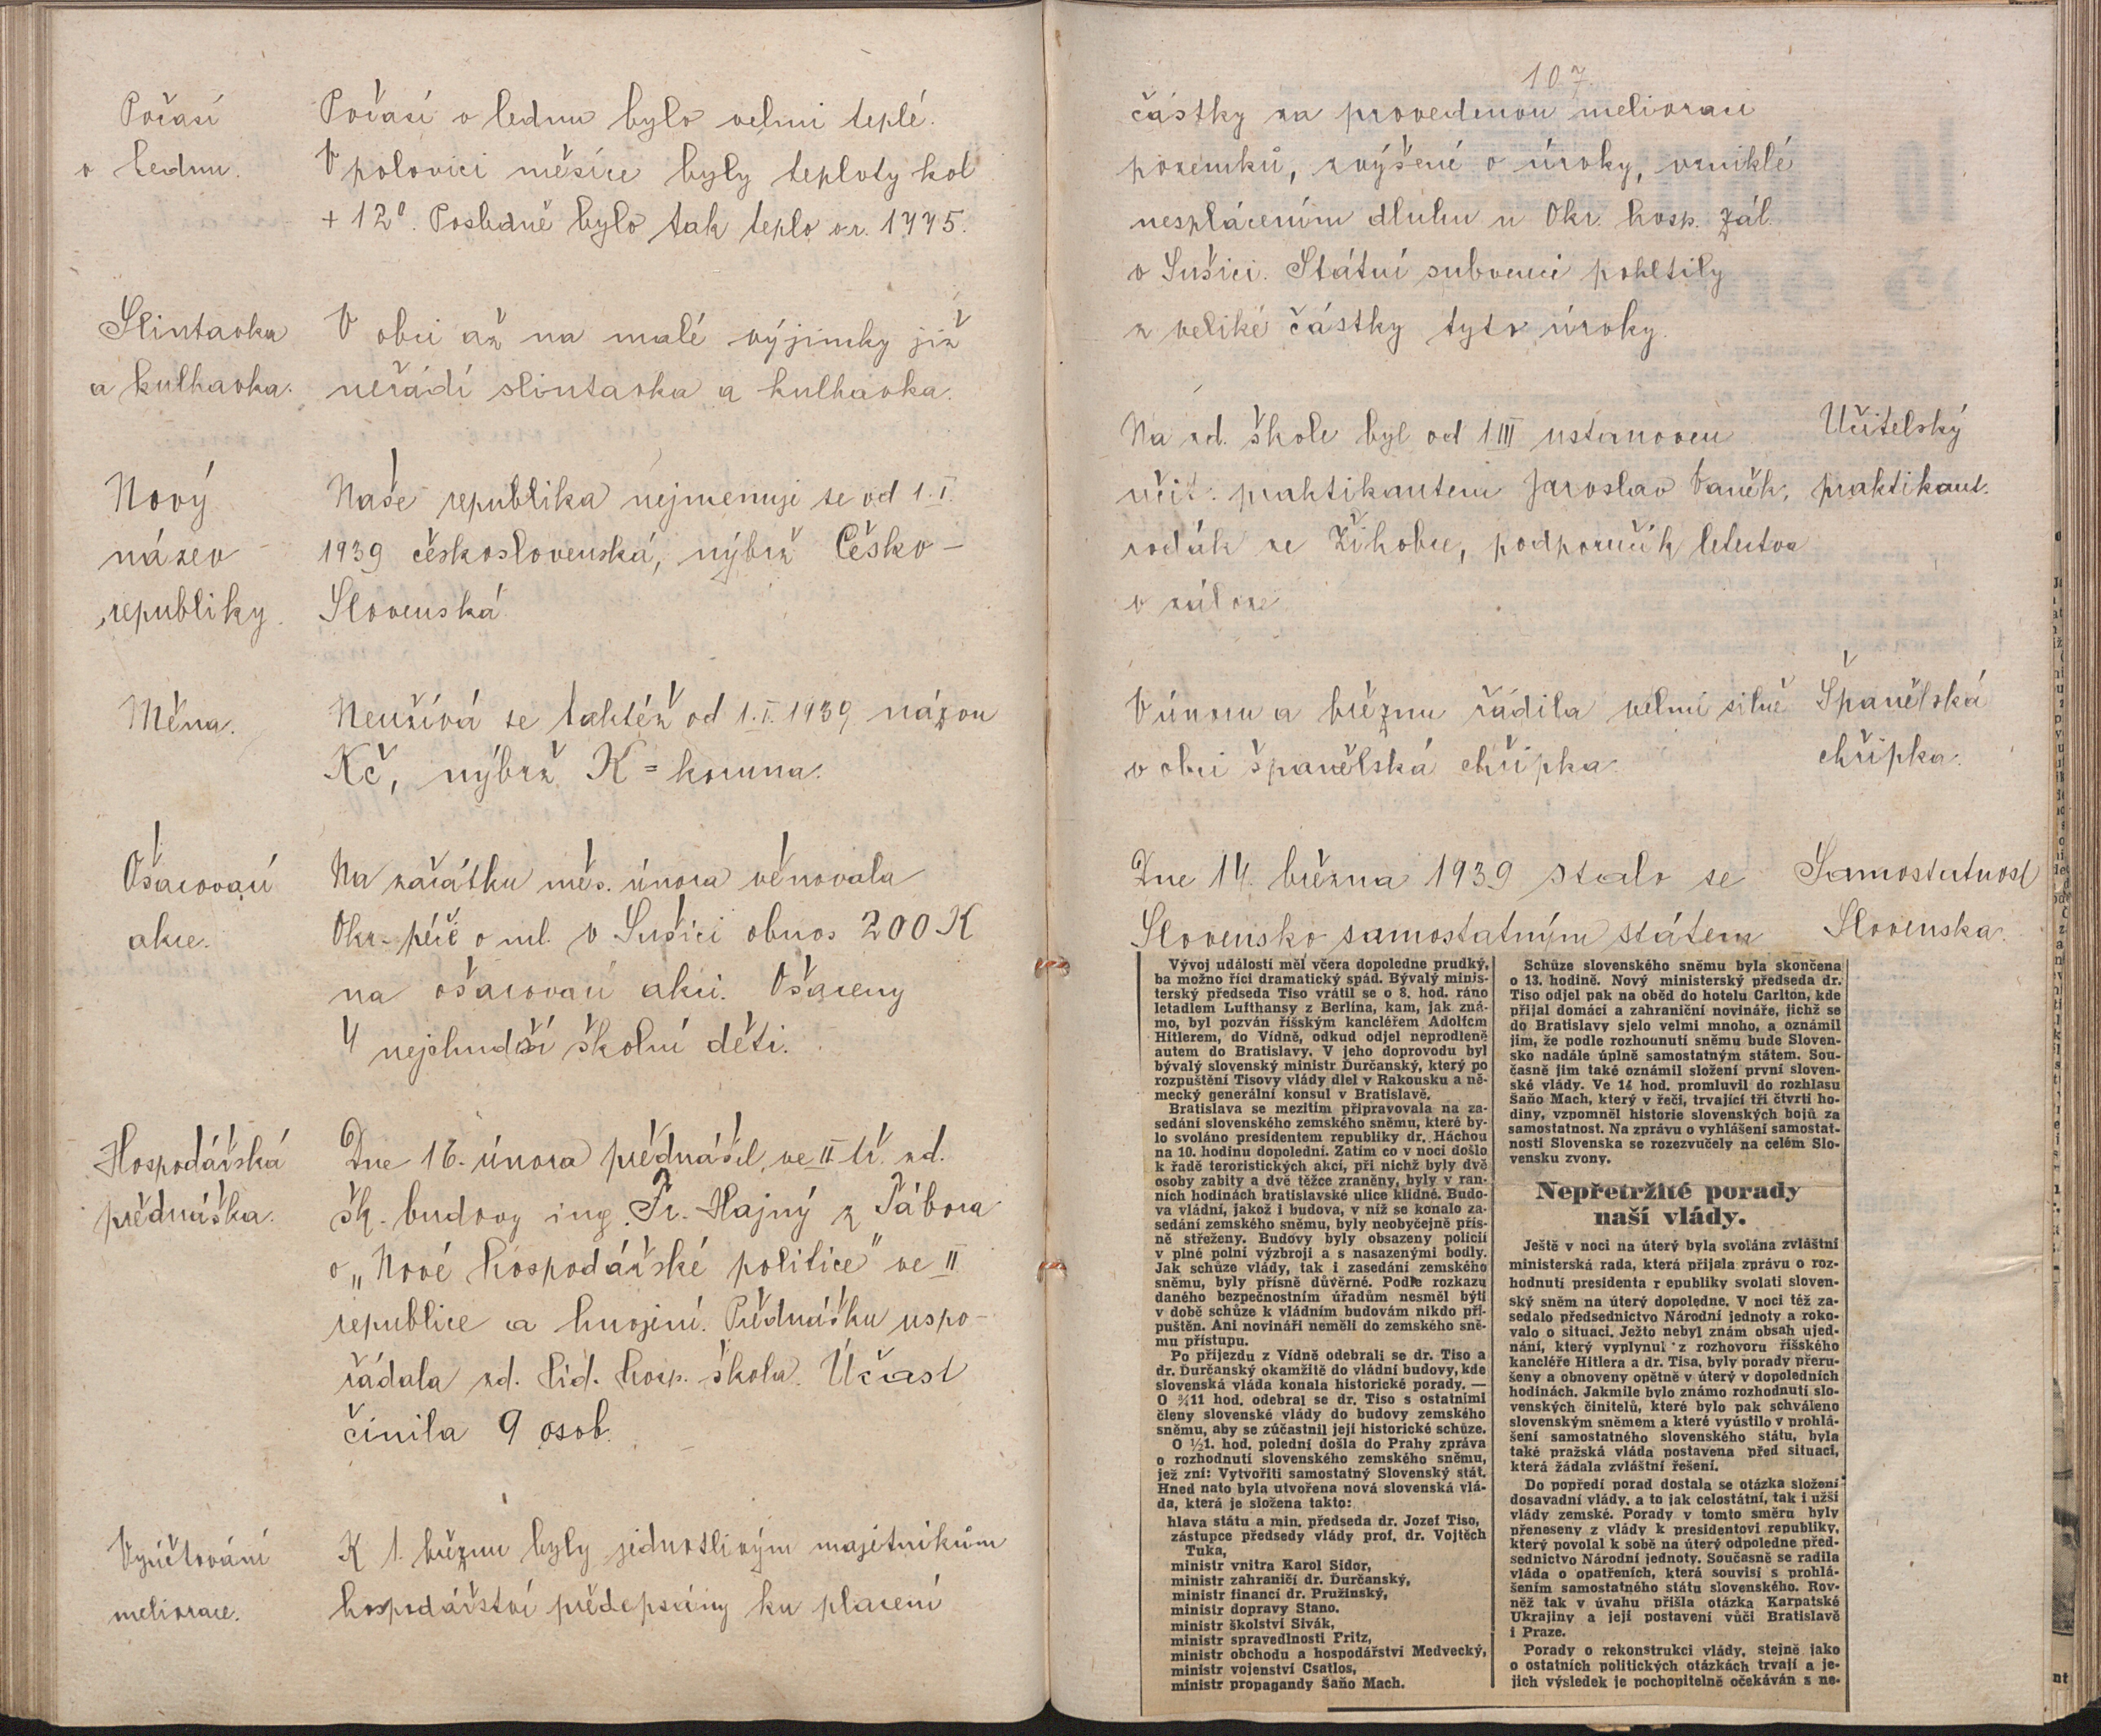 Počasí
v lednu.
Počasí v lednu bylo velmi teplé.
V polovici měsíce byly teploty kol
+ 12°. Posledně bylo tak teplo v r. 1775.
Slintavka
a kulhavka.
V obci až na malé výjimky již
neřádí slintavka a kulhavka.
Nový
název
republiky.
Naše republika nejmenuje se od 1.I.
1939 československá, nýbrž Česko-
Slovenská.
Měna.
Neužívá se taktéž od 1.I.1939 názvu
Kč, nýbrž K = koruna.
Ošacovací
akce.
Na začátku měs. února věnovala
Okr. péče o ml. v Sušici obnos 200 K
na ošacovací akci. Ošaceny
4 nejchudší školní děti.
Hospodářská
přednáška.
Dne 16. února přednášel ve II tř. zd.
šk. budovy ing. Fr. Hajný z Tábora
o „Nové hospodářské politice" ve II
republice a hnojení. Přednášku uspo-
řádala zd. lid. hosp. škola. Účast
činila 9 osob.
Vyúčtování
meliorace.
K 1. březnu byly jednotlivým majetníkům
hospodářství předepsány ku placení
107.
částky za provedenou melioraci
pozemků, zvýšené o úroky, vzniklé
nesplácením dluhu u Okr. hosp. zál.
v Sušici. Státní subvenci pohltily
z veliké částky tyto úroky.
Na zd. škole byl od 1.III ustanoven
učit. praktikantem Jaroslav Vaněk,
rodák ze Žihobce, podporučík letectva
v záloze.
Učitelský
praktikant.
V únoru a březnu řádila velmi silně
v obci španělská chřipka.
Španělská
chřipka.
Dne 14. března 1939 stalo se
Slovensko samostatným státem
Samostatnost
Slovenska.
Vývoj událostí měl včera dopoledne prudký,
ba možno říci dramatický spád. Bývalý minis-
terský předseda Tiso vrátil se o 8. hod. ráno
letadlem Lufthansy z Berlína, kam, jak zná-
mo, byl pozván říšským kancléřem Adolfem
Hitlerem, do Vídně, odkud odjel neprodleně
autem do Bratislavy. V jeho doprovodu byl
bývalý slovenský ministr Ďurčanský, který po
rozpuštění Tisovy vlády dlel v Rakousku a ně-
mecký generální konsul v Bratislavě.
Bratislava se mezitím připravovala na za-
sedání slovenského zemského sněmu, které by-
lo svoláno presidentem republiky dr. Háchou
na 10. hodinu dopolední. Zatím co v noci došlo
k řadě teroristických akcí, při nichž byly dvě
osoby zabity a dvě těžce zraněny, byly v ran-
ních hodinách bratislavské ulice klidné. Budo-
va vládní, jakož i budova, v níž se konalo za-
sedání zemského sněmu, byly neobyčejně přís-
ně střeženy. Budovy byly obsazeny policií
v plné polní výzbroji a s nasazenými bodly.
Jak schůze vlády, tak i zasedání zemského
sněmu, byly přísně důvěrné. Podle rozkazu
daného bezpečnostním úřadům nesměl býti
v době schůze k vládním budovám nikdo při-
puštěn. Ani novináři neměli do zemského sně-
mu přístupu.
Po příjezdu z Vídně odebrali se dr. Tiso a
dr. Ďurčanský okamžitě do vládní budovy, kde
slovenská vláda konala historické porady. —
O ¾11 hod. odebral se dr. Tiso s ostatními
členy slovenské vlády do budovy zemského
sněmu, aby se zúčastnil její historické schůze.
O ½1. hod. polední došla do Prahy zpráva
o rozhodnutí slovenského zemského sněmu,
jež zní: Vytvořiti samostatný Slovenský stát.
Hned nato byla utvořena nová slovenská vlá-
da, která je složena takto:
hlava státu a min. předseda dr. Jozef Tiso,
zástupce předsedy vlády prof. dr. Vojtěch
Tuka,
ministr vnitra Karol Sidor,
ministr zahraničí dr. Ďurčanský,
ministr financí dr. Pružinský,
ministr dopravy Stano,
ministr školství Sivák,
ministr spravedlnosti Fritz,
ministr obchodu a hospodářství Medvecký,
ministr vojenství Csatlos,
ministr propagandy Šaňo Mach.
Schůze slovenského sněmu byla skončena
o 13. hodině. Nový ministerský předseda dr.
Tiso odjel pak na oběd do hotelu Carlton, kde
přijal domácí a zahraniční novináře, jichž se
do Bratislavy sjelo velmi mnoho, a oznámil
jim, že podle rozhounutí sněmu bude Sloven-
sko nadále úplně samostatným státem. Sou-
časně jim také oznámil složení první sloven-
ské vlády. Ve 14 hod. promluvil do rozhlasu
Šaňo Mach, který v řeči, trvající tři čtvrti ho-
diny, vzpomněl historie slovenských bojů za
samostatnost. Na zprávu o vyhlášení samostat-
nosti Slovenska se rozezvučely na celém Slo-
vensku zvony.
Nepřetržité porady
naší vlády.
Ještě v noci na úterý byla svolána zvláštní
ministerská rada, která přijala zprávu o roz-
hodnutí presidenta r epubliky svolati sloven-
ský sněm na úterý dopoledne. V noci též za-
sedalo předsednictvo Národní jednoty a roko-
valo o situaci. Ježto nebyl znám obsah ujed-
nání, který vyplynul z rozhovoru říšského
kancléře Hitlera a dr. Tisa, byly porady přeru-
šeny a obnoveny opětně v úterý v dopoledních
hodinách. Jakmile bylo známo rozhodnutí slo-
venských činitelů, které bylo pak schváleno
slovenským sněmem a které vyústilo v prohlá-
šení samostatného slovenského státu, byla
také pražská vláda postavena před situaci,
která žádala zvláštní řešení.
Do popředí porad dostala se otázka složení
dosavadní vlády, a to jak celostátní, tak i užší
vlády zemské. Porady v tomto směru byly
přeneseny z vlády k presidentovi republiky,
který povolal k sobě na úterý odpoledne před-
sednictvo Národní jednoty. Současně se radila
vláda o opatřeních, která souvisí s prohlá-
šením samostatného státu slovenského. Rov-
něž tak v úvahu přišla otázka Karpatské
Ukrajiny a její postavení vůči Bratislavě
i Praze.
Porady o rekonstrukci vlády, stejně jako
o ostatních politických otázkách trvají a je-
jich výsledek je pochopitelně očekáván s ne-